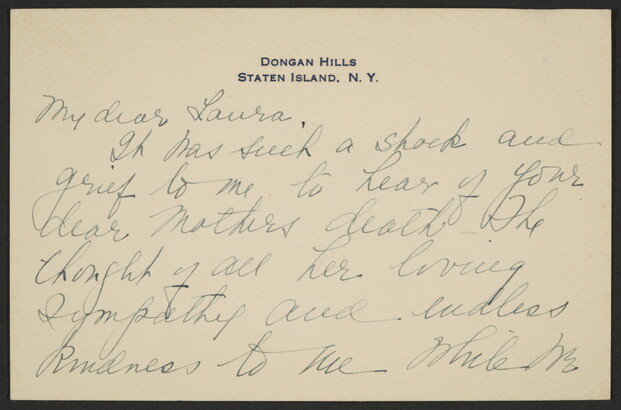 DONGAN HILLS
STATEN ISLAND, N. Y.
My dear Laura,
It was such a shock and
grief to me to hear of your
dear Mothers death - The
thought of all her loving
sympathy and endless
kindness to me while we